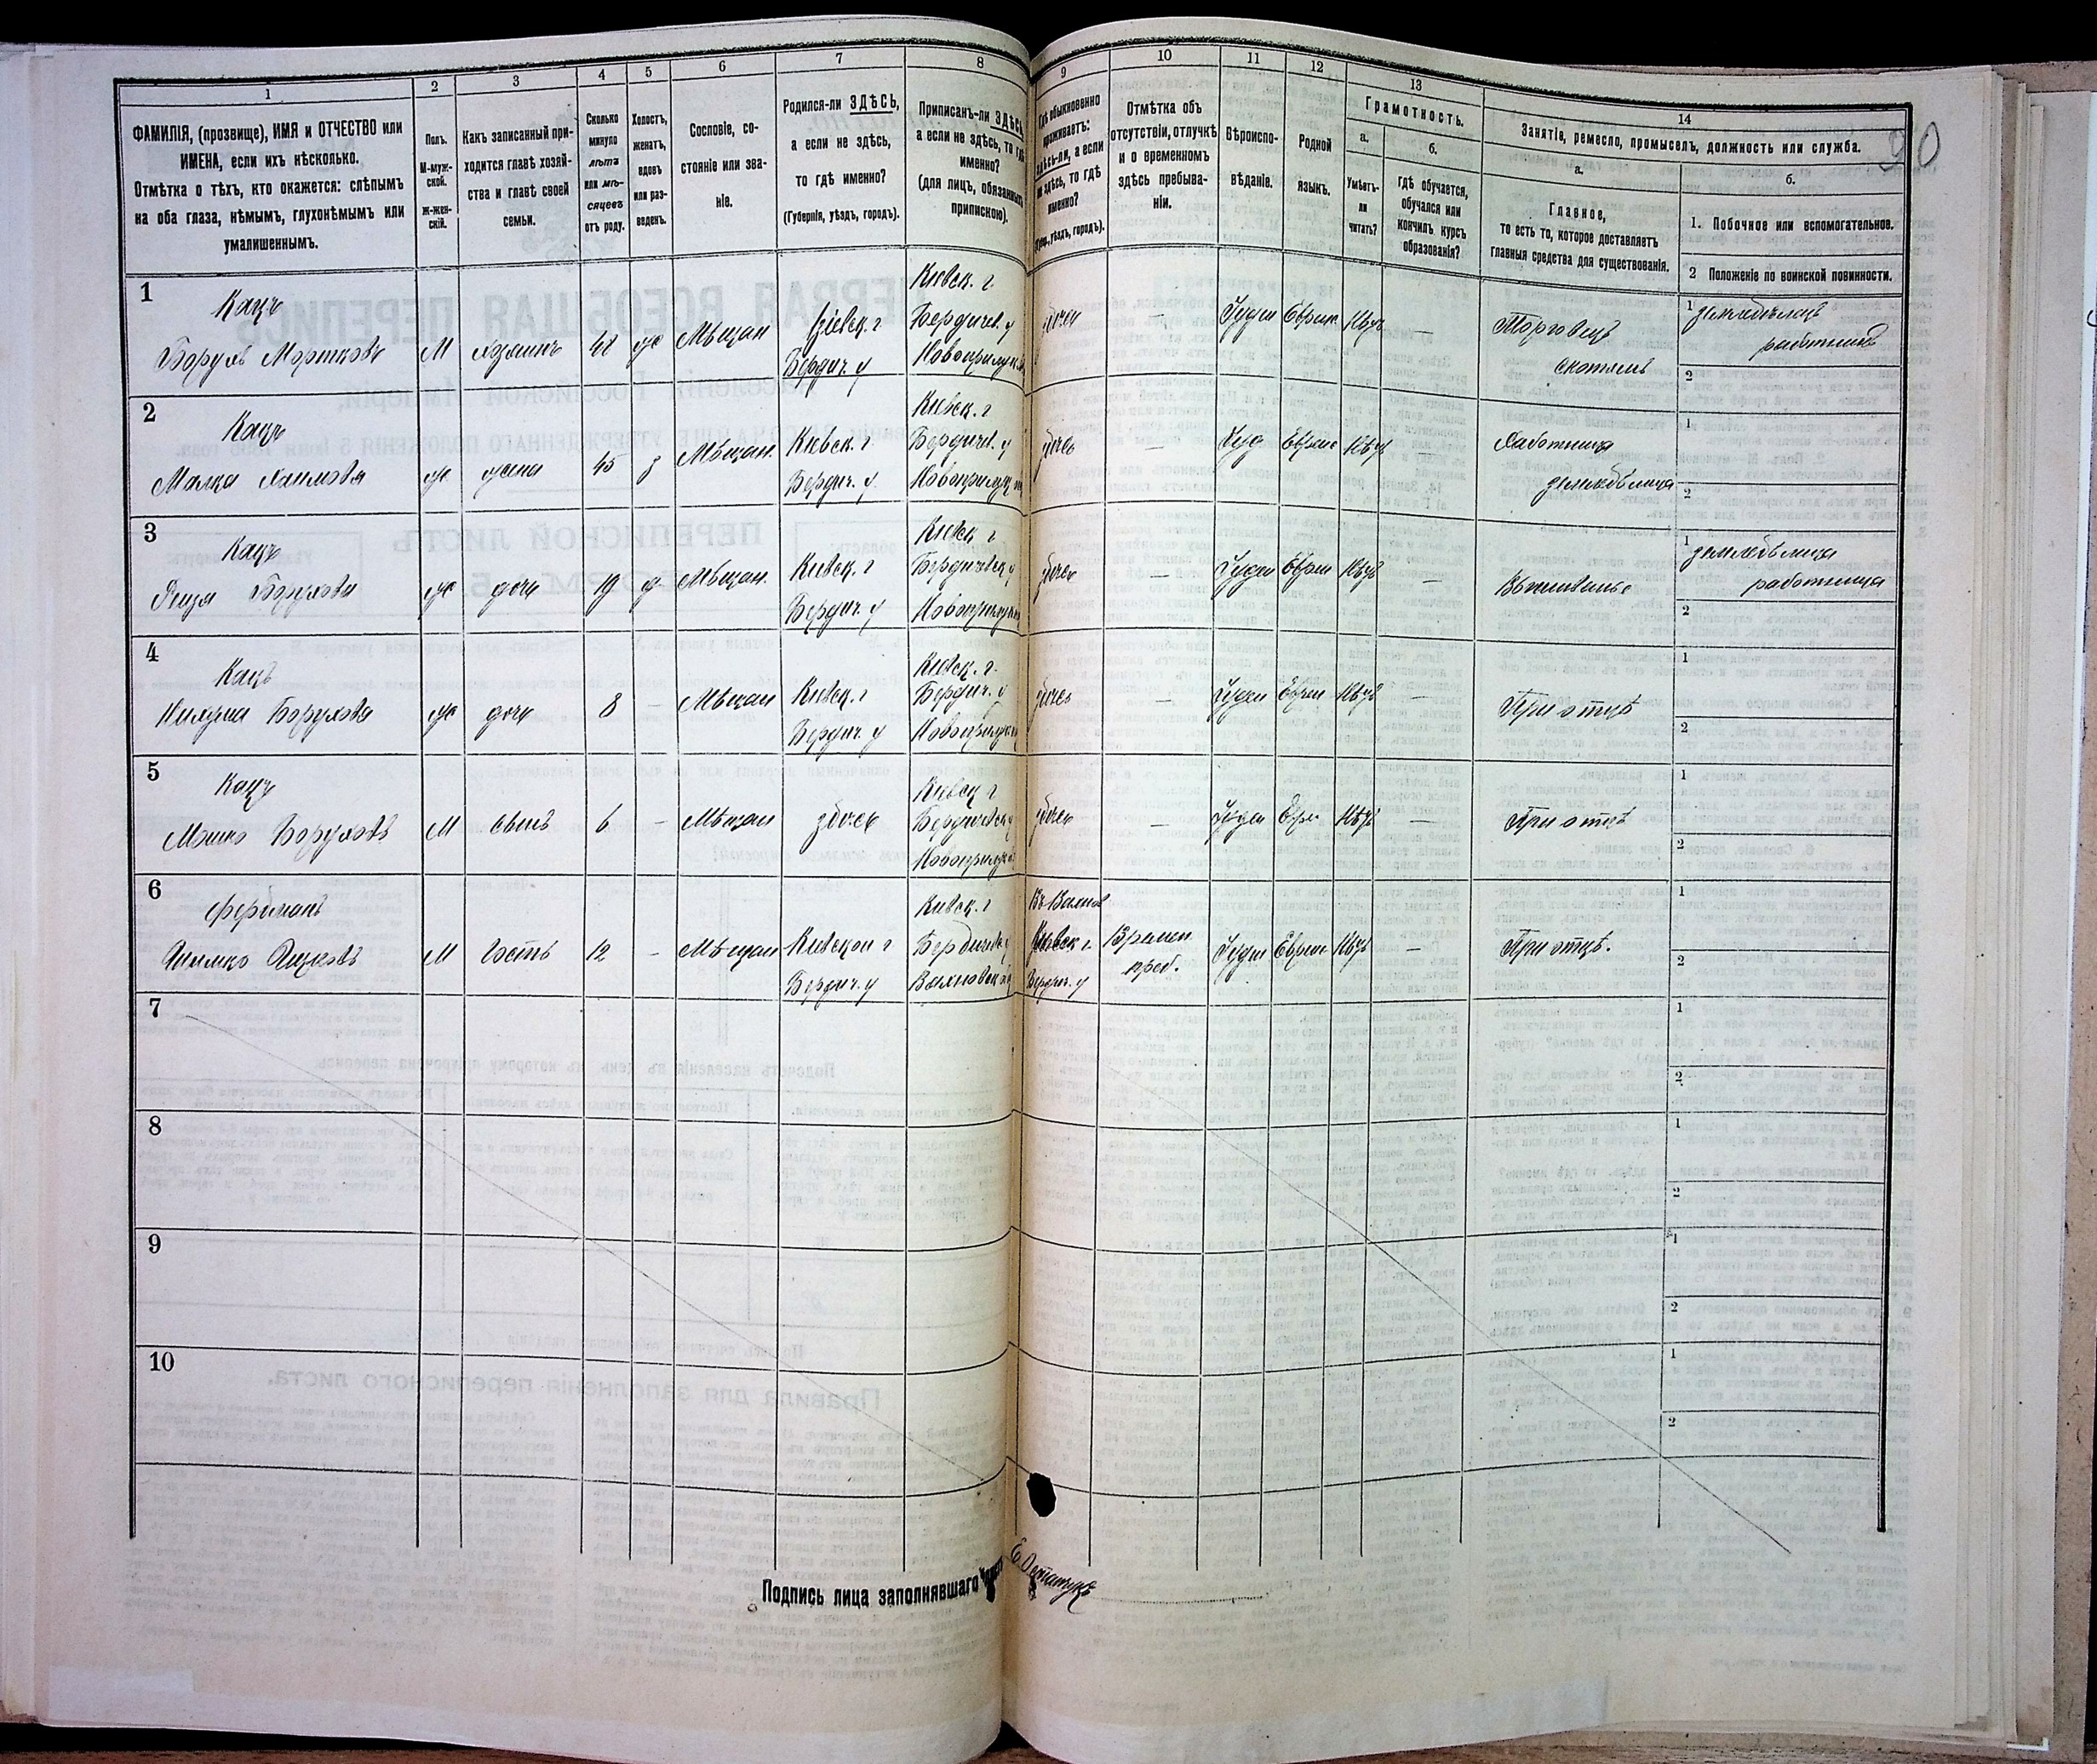 1
2
3
4
5
6
7
8
9
10
11
12
13
14
ФАМИЛІЯ, (прозвище), ИМЯ и ОТЧЕСТВО или
ИМЕНА, если ихъ нѣсколько.
Отмѣтка о тѣхъ, кто окажется: слѣпымъ
на оба глаза, нѣмымъ, глухонѣмымъ или
умалишеннымъ.
Полъ.
М-муж-
ской.
ж-жен-
скій.
Какъ записанный при-
ходится главѣ хозяй-
ства и главѣ своей
семьи.
Сколько
минуло
лѣтъ
или мѣ-
сяцевъ
отъ роду.
Холостъ,
женатъ,
вдовъ
или раз-
веденъ.
Сословіе, со-
стояніе или зва-
ніе.
Родился-ли ЗДѢСЬ,
а если не здѣсь,
то гдѣ именно?
(Губернія, уѣздъ, городъ).
Приписанъ-ли ЗДѢСЬ,
а если не здѣсь, то гдѣ
именно?
(для лицъ, обязанныхъ
припискою).
обыкновенно
а если
здѣсь, то гдѣ
именно?
уѣздъ, городъ).
Отмѣтка объ
отсутствіи, отлучкѣ
и о временномъ
здѣсь пребыва-
ніи.
Вѣроиспо-
вѣданіе.
Родной
языкъ.
Грамотность.
а.
Умѣетъ-
ли
читать?
б.
гдѣ обучается,
обучался или
кончилъ курсъ
образованія?
Занятіе, ремесло, промыселъ, должность или служба.
90
а.
Главное,
то есть то, которое доставляетъ
главныя средства для существованія.
б.
1. Побочное или вспомогательное.
2 Положеніе по воинской повинности.
1
Кацъ
Борухъ Мортковъ
М
хозяинъ
48
ж
Мѣщан
Кіевск. г
Бердич. у
Кіевск. г.
Бердичев. у
Новоприлуцк.
здѣсь
—
Іудеи
Еврей
Нѣтъ
—
Торговецъ
скотомъ
1 земледѣлецъ
работникъ
2
2
Кацъ
Малка Хаимова
ж
жена
45
з
Мѣщан.
Кіевск. г
Бердич. у.
Кіевск. г
Бердичев. у
Новоприлуцк
здѣсь
—
Іуд
Еврее
Нѣтъ
Работница
1
2
3
Кацъ
Борухова
ж
дочь
19
д
Мѣщан.
Кіевск. г
Бердич. у
Кіевск г
Бердичевск у
Новоприлуцк
здѣсь
—
Іудеи
Евреи
Нѣтъ
—
1 земледѣлица
работница
2
4
Кацъ
Борухова
ж
дочь
8
—
Мѣщан
Кіевск. г
Бердич. у
Кіевск. г.
Бердич. у
Новоприлуцк
здѣсь
—
Іудеи
Евреи
Нѣтъ
—
При отцѣ
1
2
5
Кацъ
Мошко Боруховъ
М
сынъ
6
—
Мѣщан
здѣсь
Кіевск г
Бердичевск у
Новоприлуцк
здѣсь
—
Іудеи
Евре
Нѣтъ
—
При отцѣ
1
2
6
Ферманъ
Ицковъ
М
Гость
12
—
Мѣщан
Кіевской г
Бердич. у
Кіевск. г
Бердичевск у
Вахновск
Въ Вахнов
Кіевск г.
Бердич. у
Времен.
преб.
Іудеи
Еврее
Нѣтъ
—
При отцѣ.
1
2
7
1
2
8
1
2
9
1
2
10
1
2
Подпись лица заполнявшаго